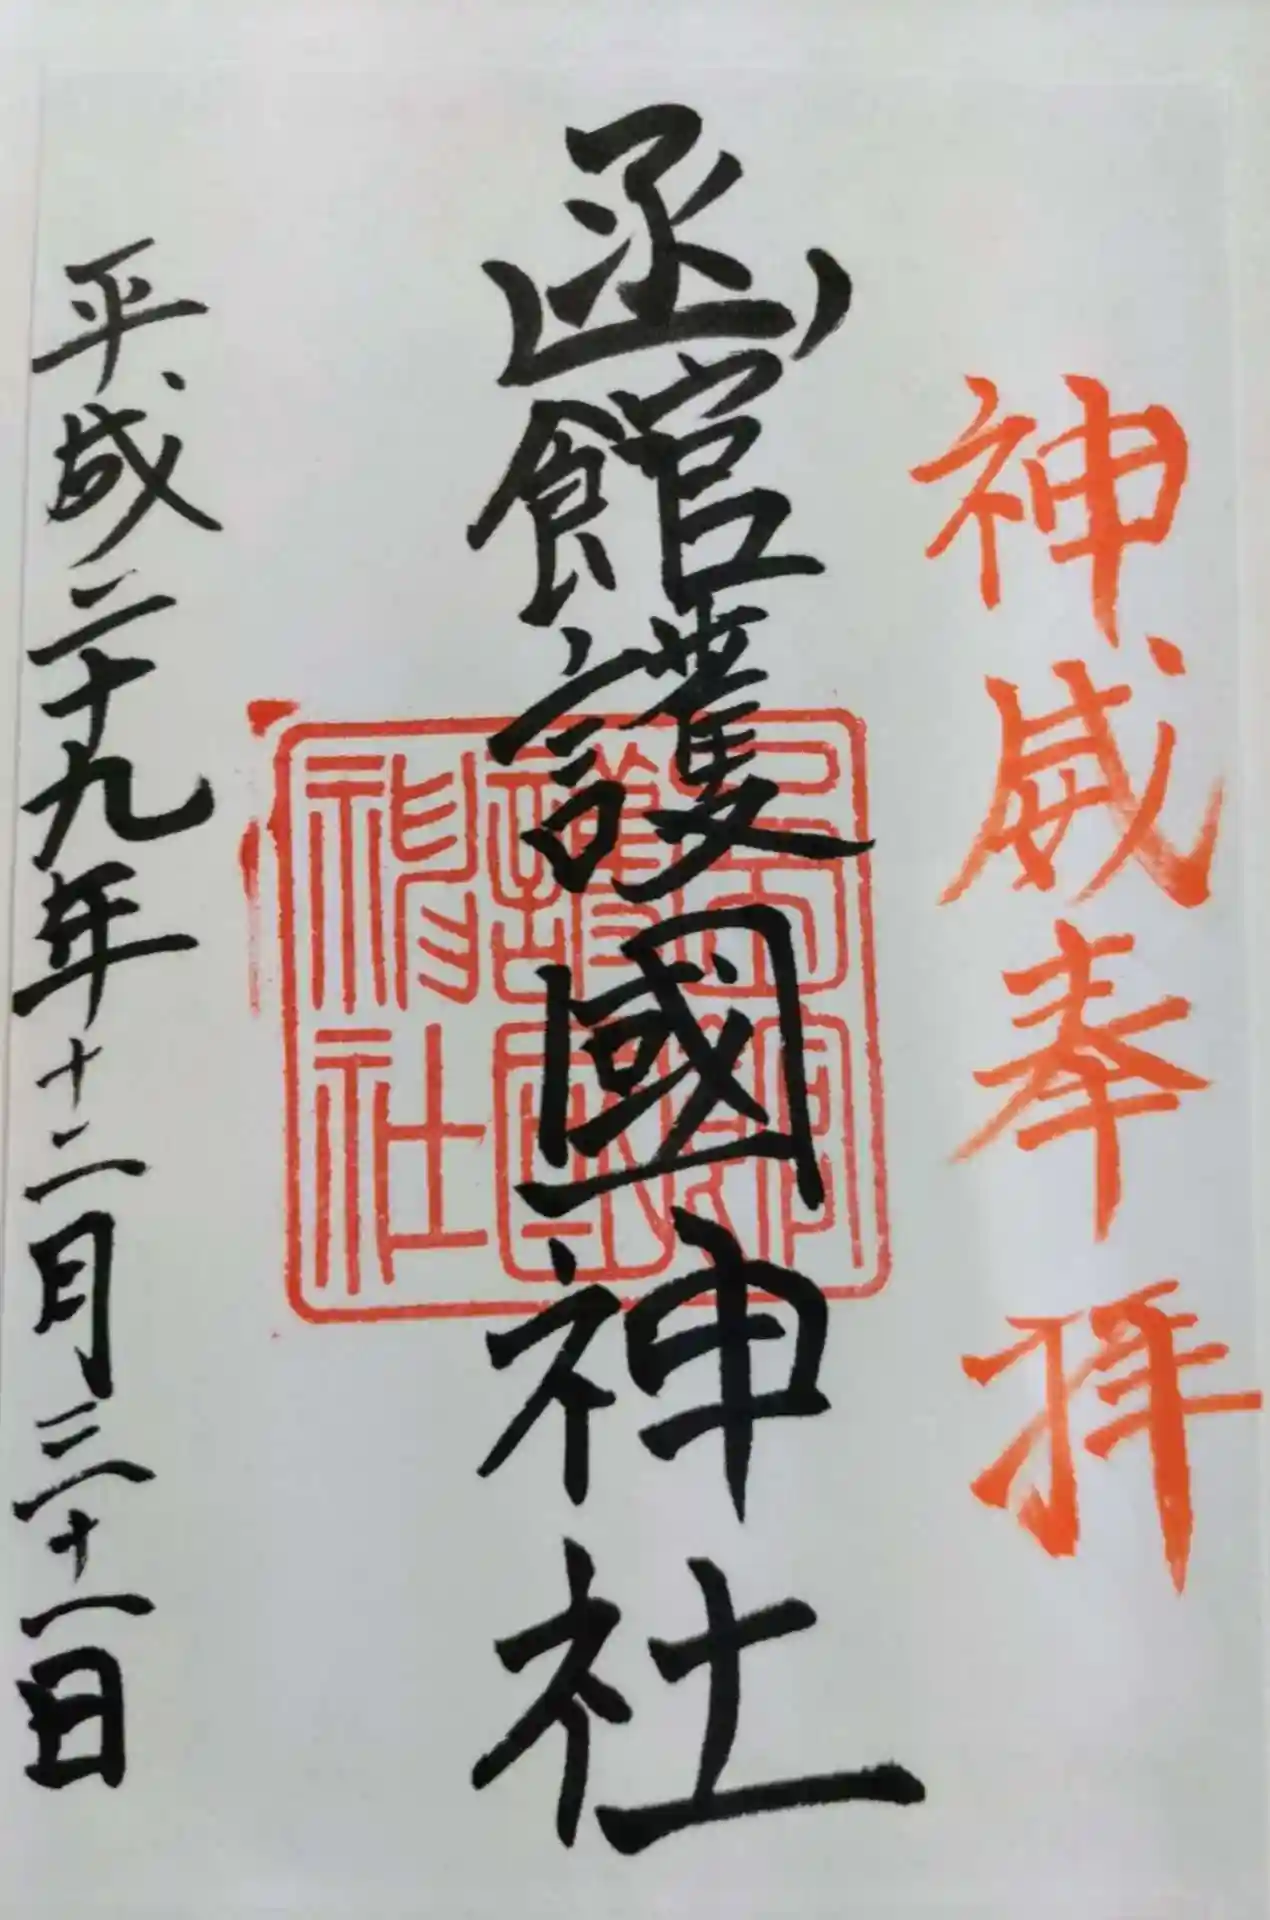 神威奉拝
函館護國神社
函館護國神社
平成二十九年十二月三十一日